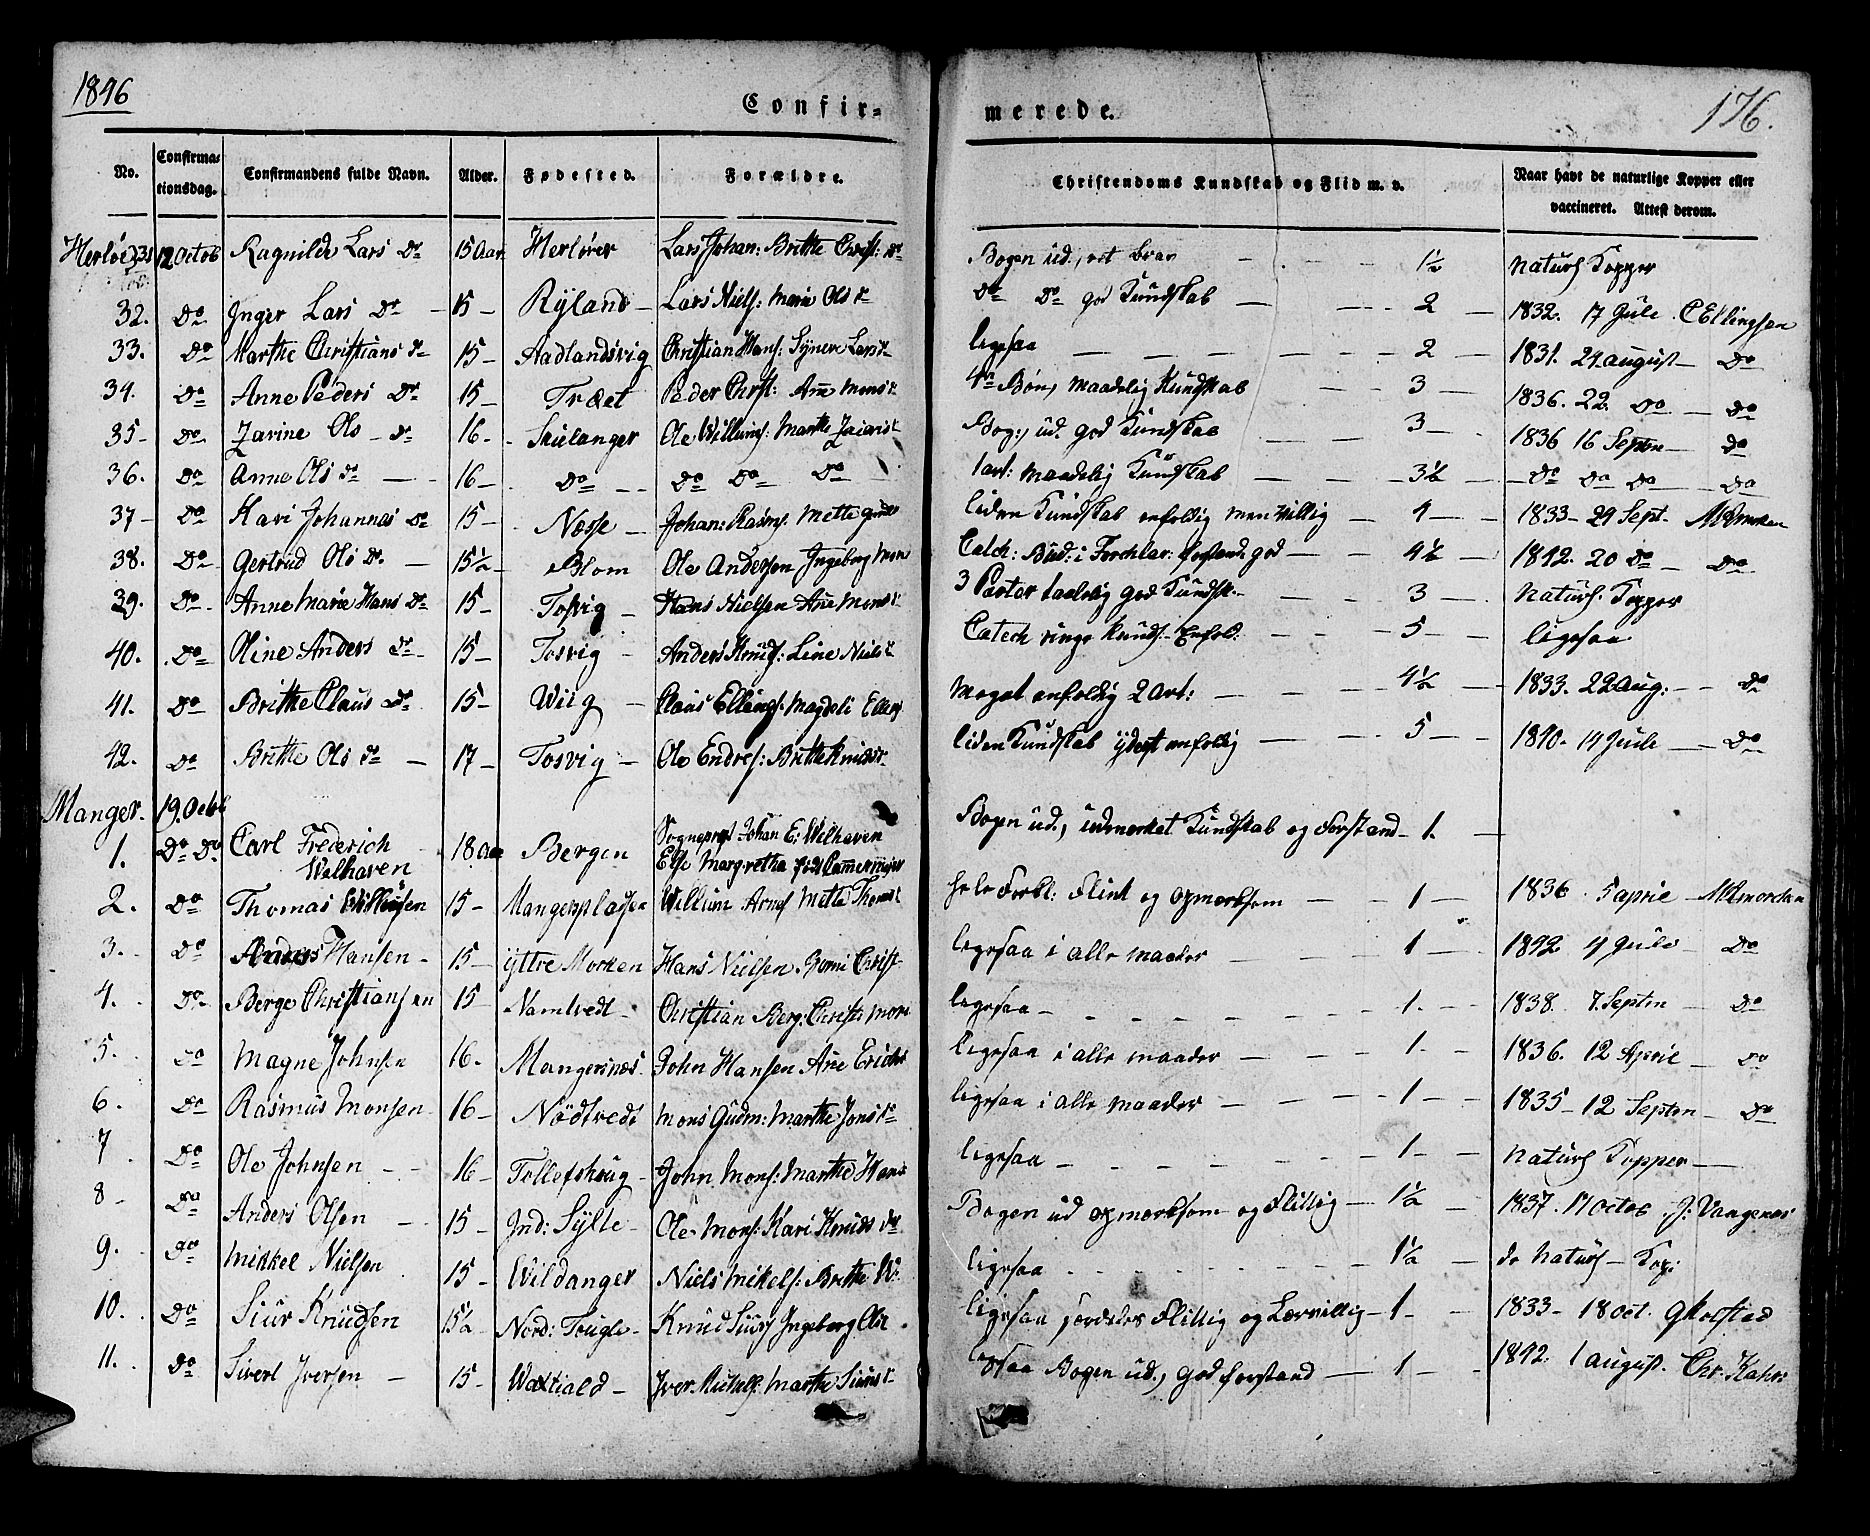 1846
Confir-
merede.
176.
No. Confirmationsdag. Confirmandens fulde Navn. Alder. Fødested. Forældre. Christendoms Kundskab og Flid m. v. Naar havt de naturlige Kopper eller vaccineret. Attest derom.
Herløe 31 12 Octob Ragnilde Lars Dr 15 Aar Herløver Lars Johan: Britthe Christ: Dr Bogen ud, ret brav 1½ Naturl Kopper
32. Do Inger Lars Dr 15 Ryland Lars Niels: Marie Ols Dr Do Do god Kundskab 2 1832. 17 Jule. C Ellingsen
33. Do Marthe Christians Dr 15 Aadlandsvig Christian Hans: Syneve Lars Dr ligesaa 2 1831. 24 august Do
34. Do Anne Peders Dr 15 Træet Peder Christ: Ane Mons Dr 4de Bøn, maadelig Kundskab 3 1836. 22. Do Do
35 Do Zarine Ols Dr 16 Skulanger Ole Willums: Marthe Zacaris Dr Bog: ud. god Kundskab 3 1836 16 Septm Do
36. Do Anne Ols Dr 16 Do Do Do Do 1 art: maadelig Kundskab 3½ Do Do Do Do
37 Do Kari Johannes Dr 15 Nesse Johan: Rasms. Mette liden Kundskab enfoldig men villig 4 1833 29 Sept.
38. Do Gertrud Ols Dr 15½ Blom Ole Andersen Ingeborg Mon Catch: Bud: i Forchlar: forstand god 4½ 1842. 20 Do Do
39. Do Anne Marie Hans Dr 15 Tosvig Hans Nielsen Ane Mons Dr 3 Parter taalelig god Kundsk. 3 Naturl. Kopper
40. Do Oline Anders Dr 15 Tosvig Anders Knuds: Line Niels Dr Catech ringe Kunds. Enfold: 5 ligesaa
41. Do Britthe Claus Dr 15 Wiig Claus Ellings: Magdeli Ellings Meget enfoldig 2 Art: 4½ 1833. 22 Aug: Do
42. Do Britthe Ols Dr 17 Tosvig Ole Endres: Britthe Knuds Dr liden Kundskab yderst enfoldig 5 1840. 14 Jule Do
Manger. 19. Octob
1. Do Do Carl Frederich Welhaven 18 Aar Bergen Sogneprest Johan E: Welhaven Else Margretha født Cammermeyer Bogen ud, udmerket Kundskab og Forstand 1.
2. Do Thomas Willumsen 15 Mangerpladsen Willum Arnes Mette Thomas Dr hele Forkl: Flink og opmerksom 1 1836. 5 april
3. Do Anders Hansen 15 Yttre Morken Hans Nielsen Christ ligesaa i alle maader 1 1842 4 Jule Do
4. Do Berge Christiansen 15 Namtvedt Christian Berg: Christi Mon ligesaa 1. 1838. 7. Septm Do
5. Do Magne Johnsen 16. Mangersnæs John Hansen Ane Erichs ligesaa i alle maader 1. 1836. 12 April Do
6. Do Rasmus Monsen 16 Nödtvedt Mons Gudm: Marthe Jons Dr ligesaa i alle maader 1 1835 12 Septem Do
7 Do Ole Johnsen 16 Tollefskoug John Mons: Marthe Hans ligesaa 1 Naturl Kopper
8 Do Anders Olsen 15 Ind: Sylte Ole Mons: Kari Knuds Dr Bogen ud opmerksom og Flittig 1½ 1837. 17 Octob J: Vangenæs
9. Do Mikkel Nielsen 15 Wildanger Niels Mikels: Britthe W. ligesaa 1½ de Naturl Kop:
10. Do Siur Knudsen 15½ Nord: Tougle Knud Siurs Ingeborg Ols ligesaa særdeles Flittig og Lærvillig 1 1833 18 Oct. G Kolstad
11. Do Sivert Iversen 15 Waxtiald Iver Mickels: Marthe Siurs Dr ligesaa Bogen ud, god forstand 1 1842. 1 august. Chr: Kahrs